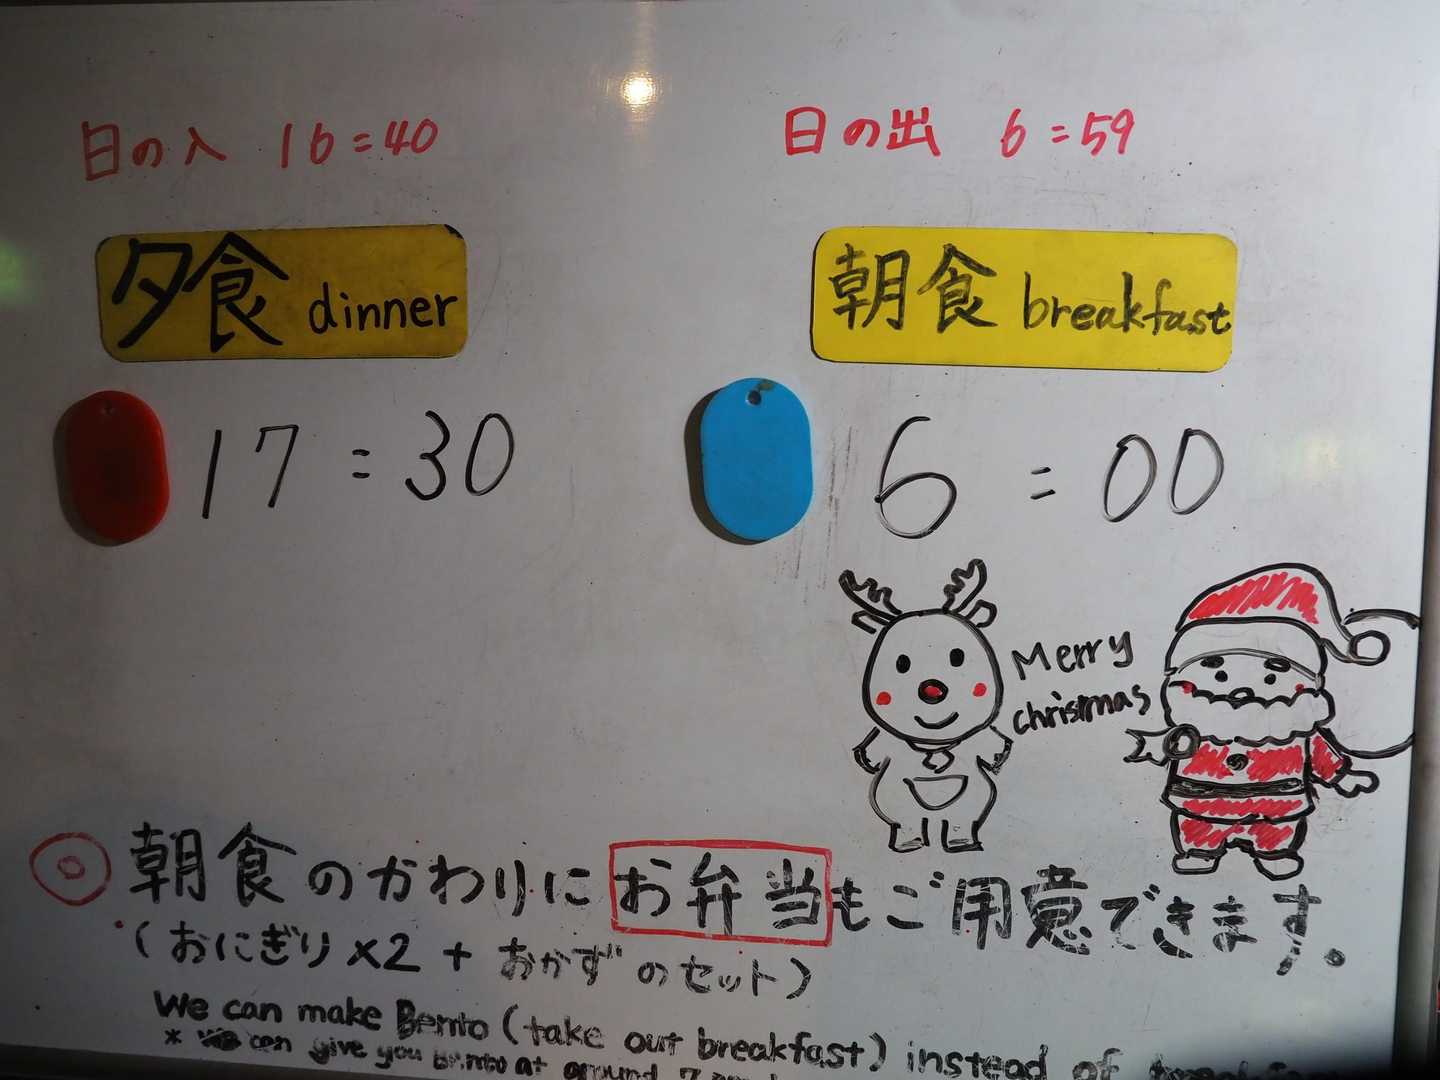 日の入 16=40
日の出 6=59
夕食 dinner
朝食 breakfast
17=30
6=00
Merry
christmas
◎ 朝食のかわりにお弁当もご用意できます。
(おにぎり×2+おかずのセット)
We can make Bento (take out breakfast) instead of
* We can give you Bento at around 7